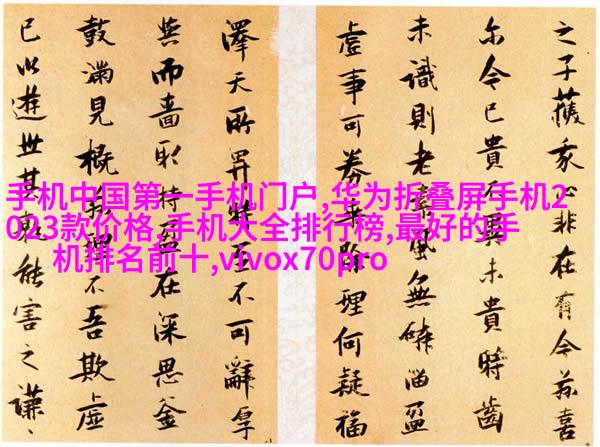 手机中国第一手机门户,华为折叠屏手机2
023款价格,手机大全排行榜,最好的手
机排名前十,vivox70pro
之子心非在有今喜
尔今已貴未貴時齒
未識則老風無盈
虛事可券除理何疑福
澤天所畀至不可辭享
與而嗇取持在深思釜
鼓滿見概理不吾欺虛
已以遊世其孰能害之謙